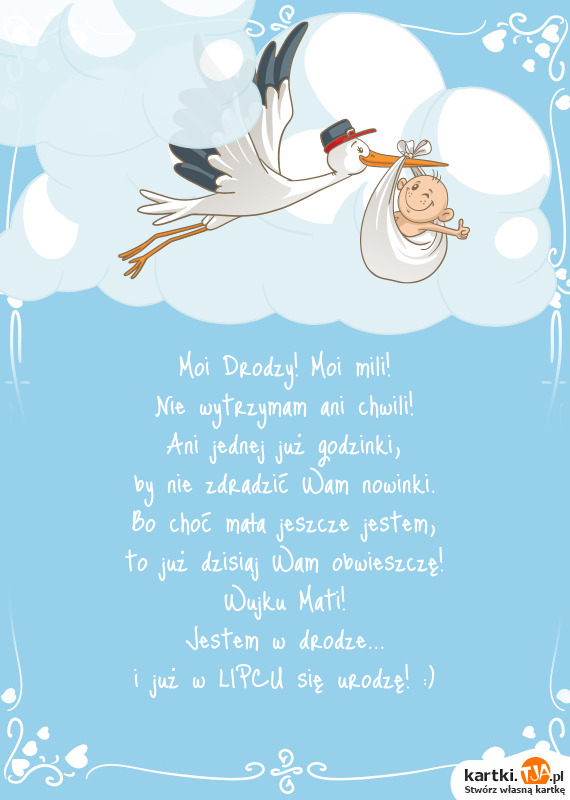 Moi Drodzy! Moi mili!
Nie wytrzymam ani chwili!
Ani jednej już godzinki,
by nie zdradzić Wam nowinki.
Bo choć mała jeszcze jestem,
to już dzisiaj Wam obwieszczę!
Wujku Mati!
Jestem w drodze...
i już w LIPCU się urodzę! :)
kartki.TJA.pl
Stwórz własną kartkę